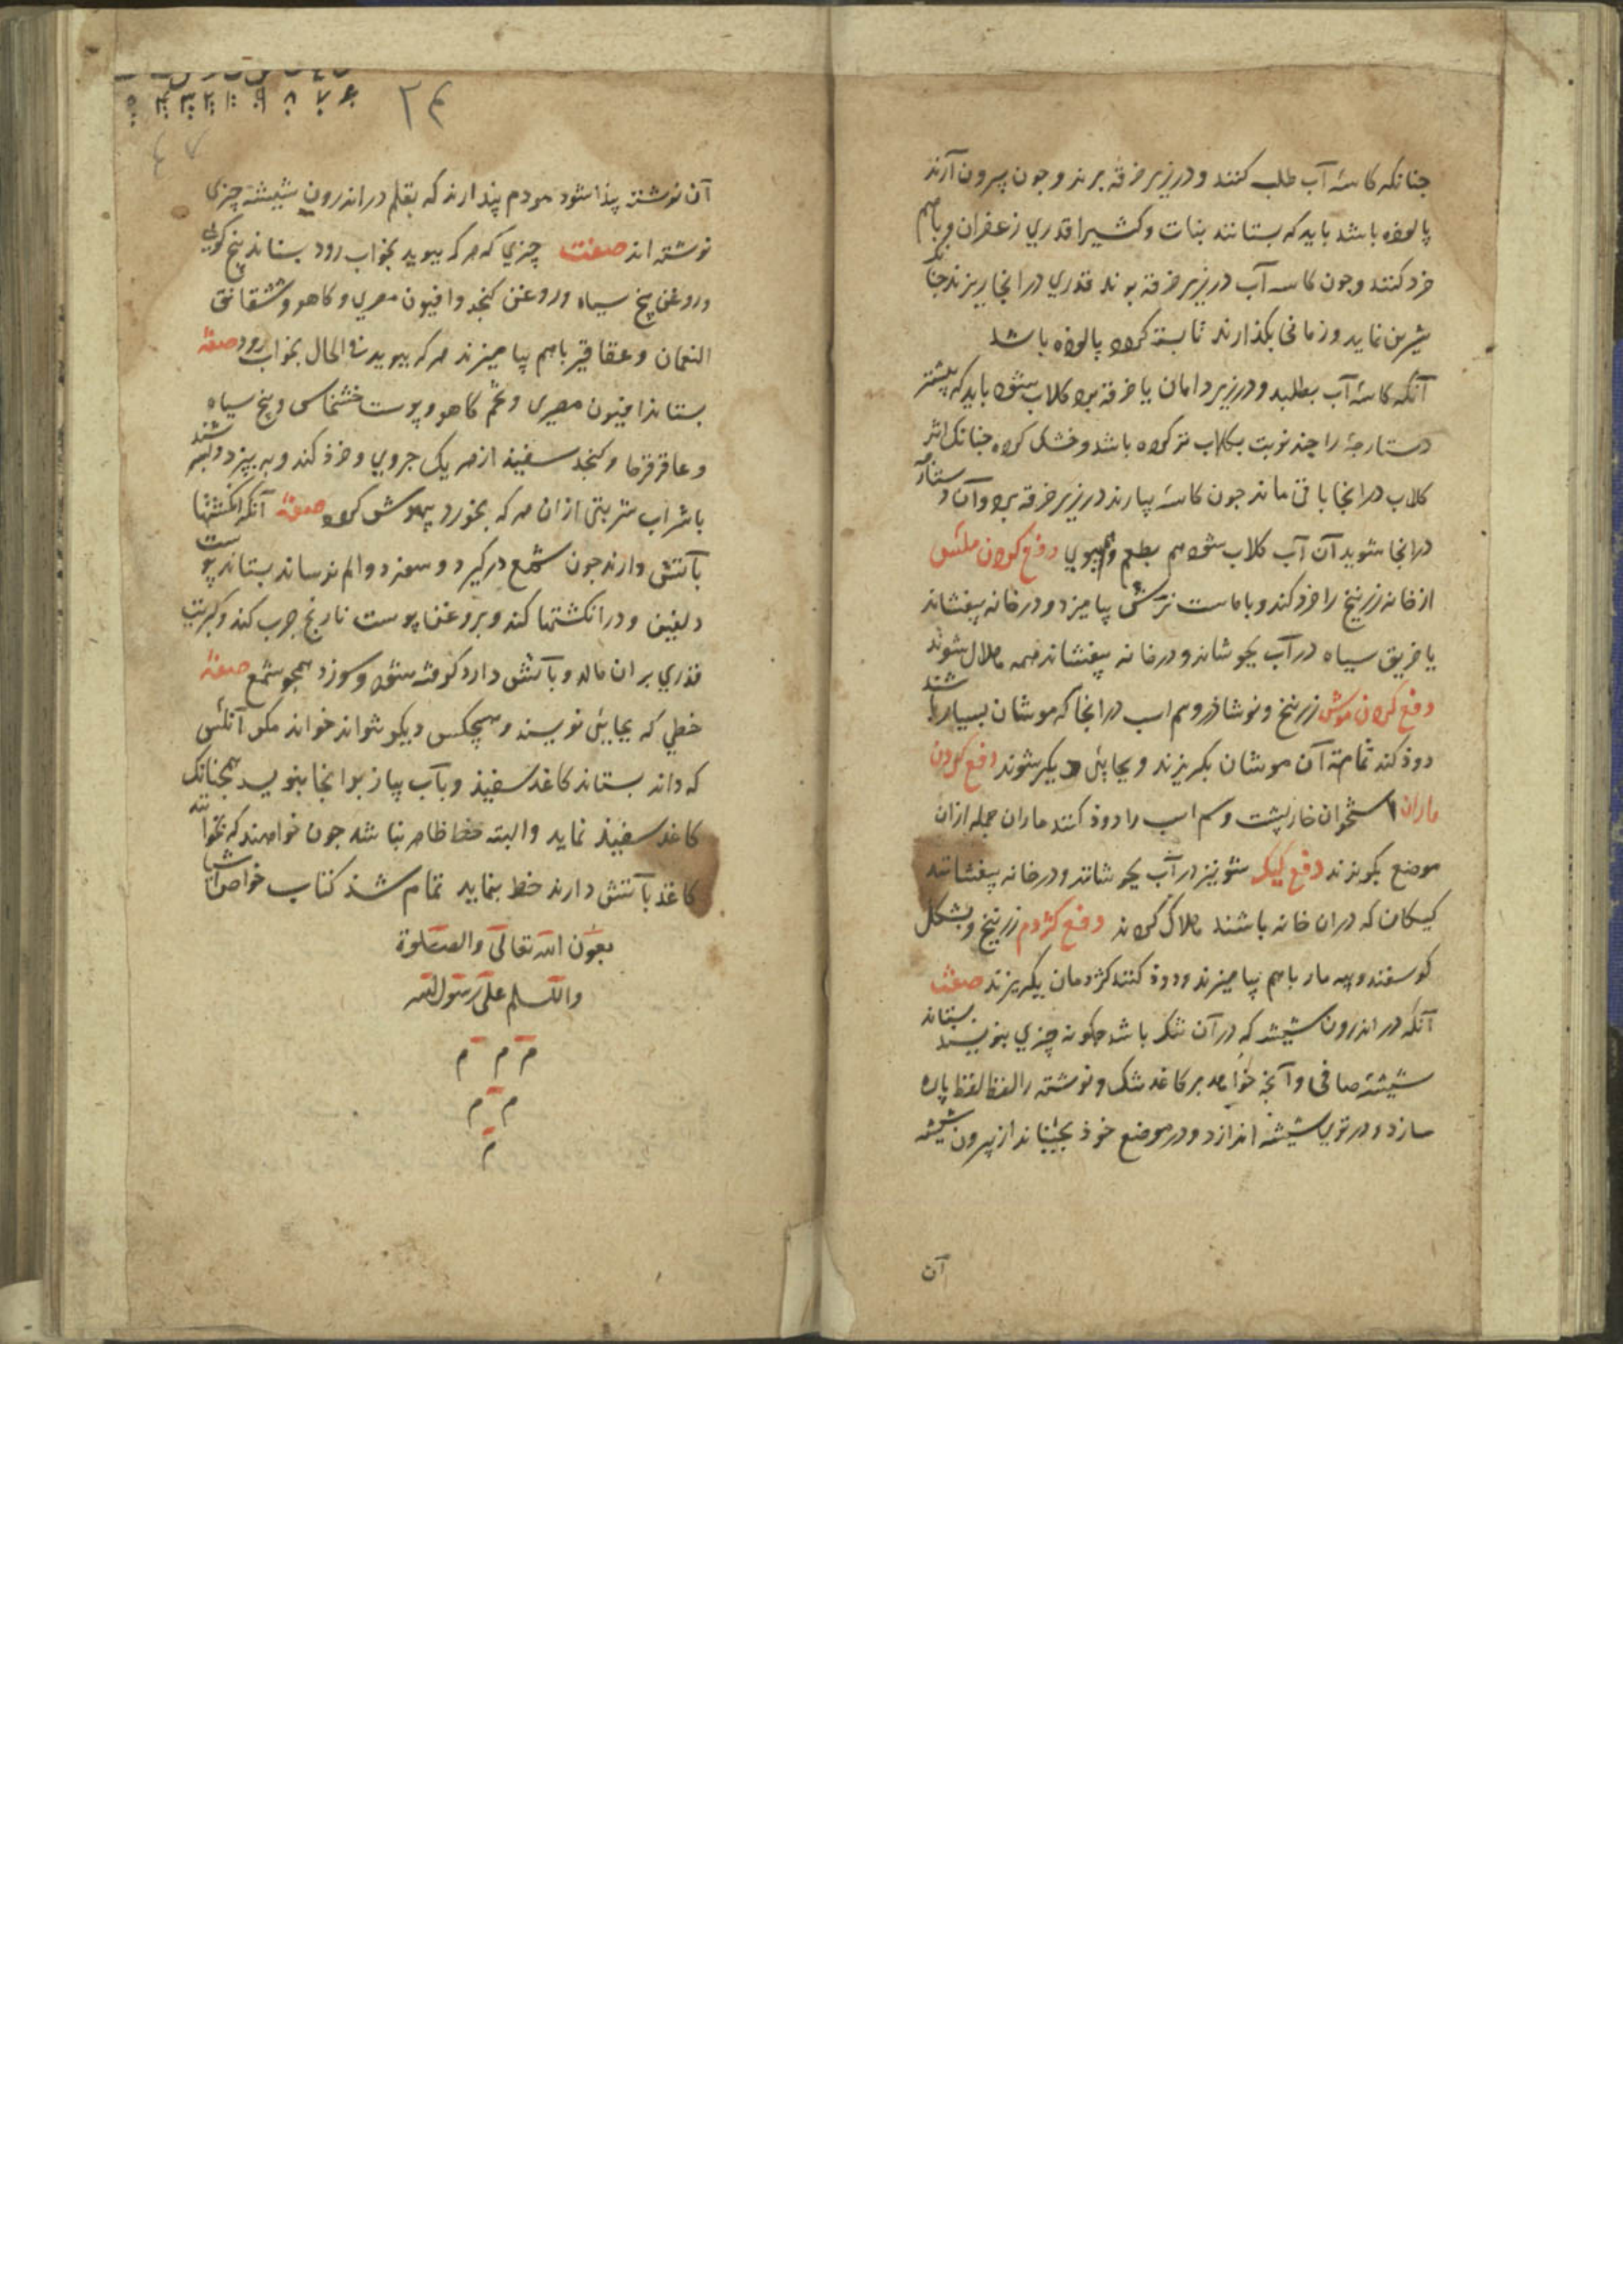 جنانکه کاسهٔ آب طلب کنند و در زیر خرقه برند و جون بیرون آرند
پالوده باشد باید که بستانند بنات و کثیرا قدری زعفران و باهم
خرد کنند و جون کاسه آب در زیر خرقه برند قدری در انجا ریزند جنانک
شیرین نماید و زمانی بکذارند تا بسته کردد پالوده باشد
آنکه کاسهٔ آب بطلبد و در زیر دامان یا خرقه برد کلاب شود باید که پیشتر
دستارجهٔ را چند نوبت بکلاب تر کرده باشد و خشک کرده جنانک اثر
کلاب در انجا باقی ماند جون کاسهٔ بیارند در زیر خرقه برد و آن دستارجه
در انجا شوید آن آب کلاب شود هم بطعم و هم ببوی دفع کردن مکس
از خانه زرنیخ را خرد کند و با ماست ترش بیامیزد و در خانه بیفشاند
یا خربق سیاه در آب بجوشاند و در خانه بیفشاند همه هلاک شوند
دفع کردن موش زرنیخ و نوشاذر و سم اسب در انجا که موشان بسیار باشند
دوذ کند تمامت آن موشان بکریزند و بجایی دیکر شوند دفع کردن
ماران استخوان خارپشت و سم اسب را دوذ کنند ماران جمله ازان
موضع بکریزند دفع کیک شونیز در آب بجوشانند و در خانه بیفشانند
کیکان که دران خانه باشند هلاک کردند دفع کژدم زرنیخ و بشکل
کوسفند و پیه مار باهم بیامیزند و دوذ کنند کژدمان بکریزند صفت
آنکه در اندرون شیشه که در آن تنک باشد جکونه چیزی بنویسند بستاند
شیشهٔ صافی و آنجه خواهد بر کاغد تنک و نوشته را لفظ لفظ پاره
سازد و در توی شیشه اندازد و در موضع خوذ بجنباند از بیرون شیشه
آن
۲۴
آن نوشته پیذا شود مردم پندارند که بقلم در اندرون شیشه چیزی
نوشته اند صفت چیزی که هر که ببوید بخواب رود بستاند بنج کوهی
و روغن بنج سیاه و روغن کنجد و افیون مصری و کاهو و شقائق
النعمان و عقاقیر باهم بیامیزند هر که ببوید فی الحال بخواب رود صفة
بستاند افیون مصری و تخم کاهو و پوست خشخاش و بنج سیاه
و عاقرقرحا و کنجد سفیذ از هر یک جزوی و خرذ کند و ببیزد
با شراب شربتی ازان هر که بخورد بیهوش کردد صفة آنکه انکشتها
بآتش دارند جون شمع درکیرد و سوزد و الم نرساند بستاند پوست
دلفین و در انکشتها کند و بروغن پوست نارنج جرب کند و کبریت
قدری بران مالد و بآتش دارد کرفته شود و سوزد همجو شمع صفة
خطی که بجایی نویسند و هیچکس دیکر نتواند خواند مکر آنکس
که داند بستاند کاغد سفیذ و بآب پیاز برانجا بنویسد همجنانک
کاغد سفیذ نماید و البته خط ظاهر نباشد جون خواهند که بخوانند
کاغد بآتش دارند خط بنماید تمام شد کتاب خواص اشیا
بعون الله تعالی والصلوة
والسلم علی رسول الله
م م م
م م
م